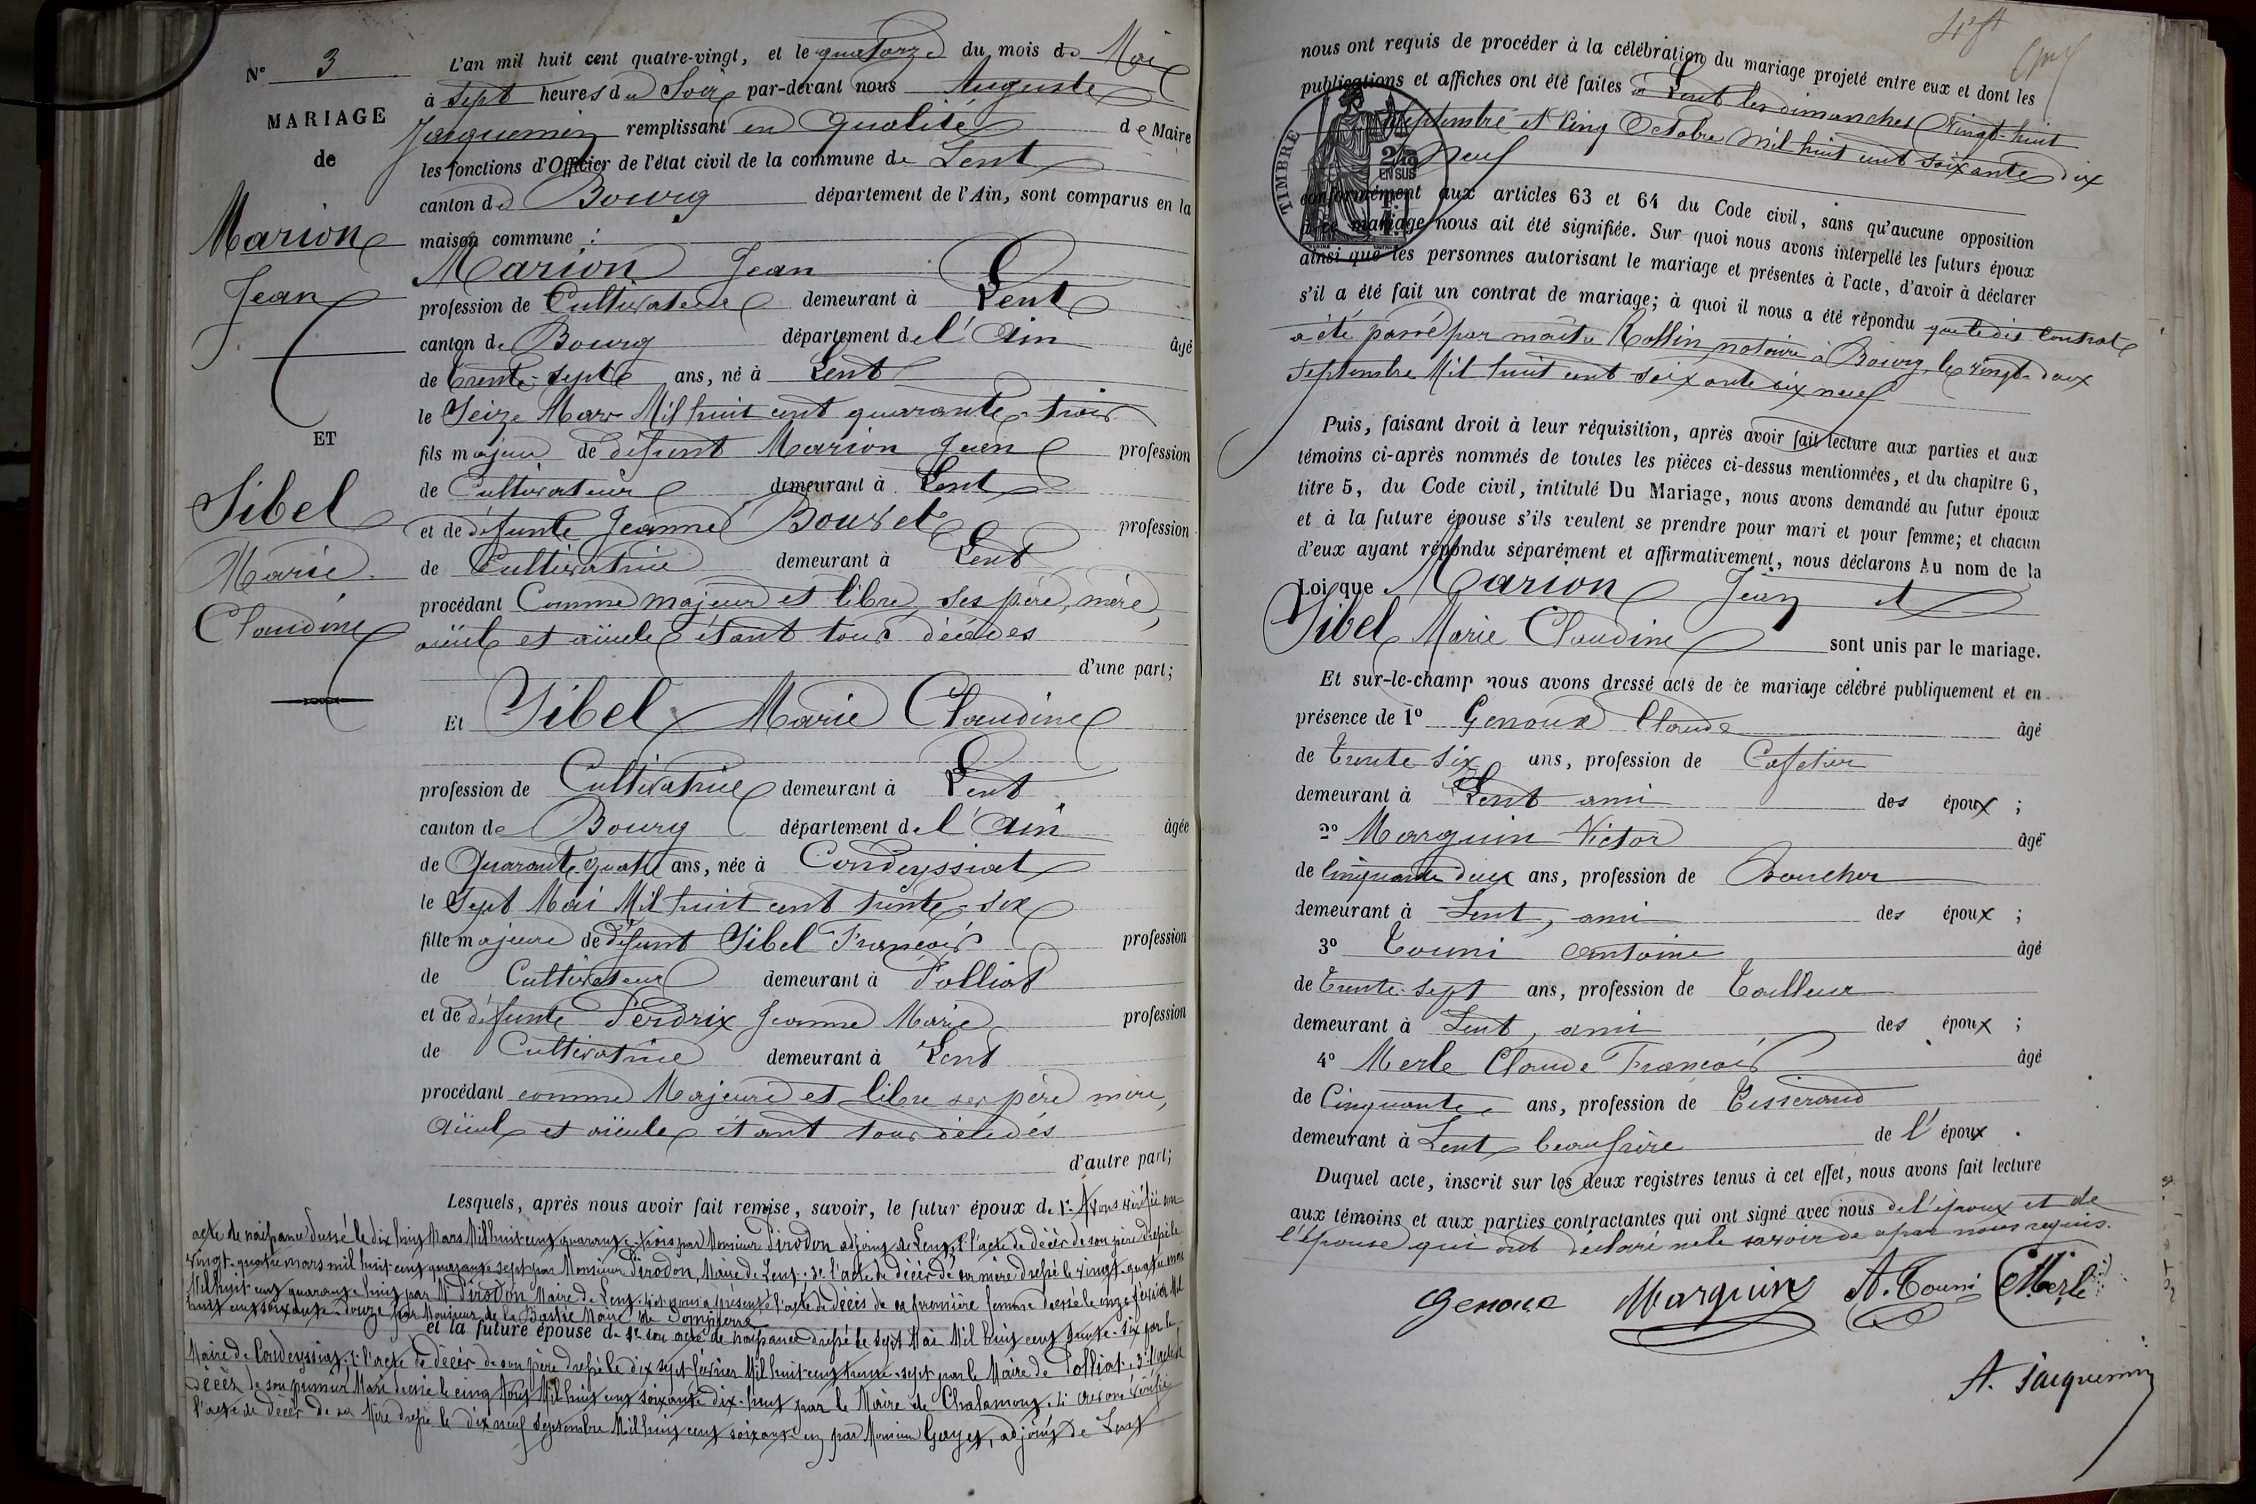 N° 3
MARIAGE
de
Marion
Jean
ET
Sibel
Marie
Claudine
L'an mil huit cent quatre-vingt, et le quatorze du mois de Mai
à sept heures du Soir par-devant nous Auguste
Jacquemin remplissant en qualité de Maire
les fonctions d'Officier de l'état civil de la commune de Lent
canton de Bourg département de l'Ain, sont comparus en la
maison commune :
Marion Jean
profession de Cultivateur demeurant à Lent
canton de Bourg département de l'Ain âgé
de trente-sept ans, né à Lent
le Seize Mars Mil huit cent quarante-trois
fils majeur de défunt Marion Jean profession
de Cultivateur demeurant à Lent
et de défunte Jeanne Bouvet profession
de Cultivatrice demeurant à Lent
procédant Comme majeur et libre, ses père, mère,
aïeul et aïeule étant tous décédés
d'une part;
Et Sibel Marie Claudine
profession de Cultivatrice demeurant à Lent
canton de Bourg département de l'Ain âgée
de Quarante-quatre ans, née à Condeyssiat
le Sept Mai Mil huit cent trente-six
fille majeure de défunt Sibel François profession
de Cultivateur demeurant à Polliat
et de défunte Perdrix Jeanne Marie profession
de Cultivatrice demeurant à Lent
procédant comme Majeure et libre ses père mère,
aïeul et aïeule étant tous décédés
d'autre part;
Lesquels, après nous avoir fait remise, savoir, le futur époux de 1° Avons vérifié son
acte de naissance dressé le dix huit Mars Mil huit cent quarante-trois par Monsieur Pirodon adjoint de Lent, 2° l'acte de décès de son père dressé le
vingt-quatre mars mil huit cent quarante sept par Monsieur Pirodon, Maire de Lent. 3° l'acte de décès de sa mère dressé le vingt-quatre mai
Mil huit cent quarante-huit par Mr Pirodon Maire de Lent. 4° et nous a présenté l'acte de décès de sa première femme dressé le onze février Mil
huit cent soixante-douze par Monsieur de la Bastie Maire de Dompierre
et la future épouse de 1° son acte de naissance dressé le sept Mai Mil huit cent trente-six par le
Maire de Condeyssiat, 2° l'acte de décès de son père dressé le dix sept février Mil huit cent trente-sept par le Maire de Polliat. 3° l'acte de
décès de son premier Mari dressé le cinq Août Mil huit cent soixante dix-huit par le Maire de Chalamont. 4° avons vérifié
l'acte de décès de sa Mère dressé le dix neuf septembre Mil huit cent soixante un par Monsieur Gayet, adjoint de Lent
nous ont requis de procéder à la célébration du mariage projeté entre eux et dont les
publications et affiches ont été faites à Lent les dimanches Vingt-huit
Septembre et Cinq Octobre Mil huit cent soixante dix
neuf
TIMBRE
2/10 EN SUS
conformément aux articles 63 et 64 du Code civil, sans qu'aucune opposition
mariage nous ait été signifiée. Sur quoi nous avons interpellé les futurs époux
ainsi que les personnes autorisant le mariage et présentes à l'acte, d'avoir à déclarer
s'il a été fait un contrat de mariage; à quoi il nous a été répondu que ledit Contrat
a été passé par maître Collin notaire à Bourg, le vingt-deux
Septembre Mil huit cent soixante dix neuf
Puis, faisant droit à leur réquisition, après avoir fait lecture aux parties et aux
témoins ci-après nommés de toutes les pièces ci-dessus mentionnées, et du chapitre 6,
titre 5, du Code civil, intitulé Du Mariage, nous avons demandé au futur époux
et à la future épouse s'ils veulent se prendre pour mari et pour femme; et chacun
d'eux ayant répondu séparément et affirmativement, nous déclarons Au nom de la
Loi que Marion Jean et
Sibel Marie Claudine sont unis par le mariage.
Et sur-le-champ nous avons dressé acte de ce mariage célébré publiquement et en
présence de 1° Genoux Claude âgé
de trente six ans, profession de Cafetier
demeurant à Lent ami des époux ;
2° Marguin Victor âgé
de Cinquante deux ans, profession de Boucher
demeurant à Lent, ami des époux ;
3° Touni Antoine âgé
de trente-sept ans, profession de Tailleur
demeurant à Lent, ami des époux ;
4° Merle Claude François âgé
de Cinquante ans, profession de Tisserand
demeurant à Lent beau frère de l'époux .
Duquel acte, inscrit sur les deux registres tenus à cet effet, nous avons fait lecture
aux témoins et aux parties contractantes qui ont signé avec nous de l'époux et de
l'épouse qui ont déclaré ne le savoir de a par nous requis.
Genoux Marguin A. Touni Merle
A. Jacquemin